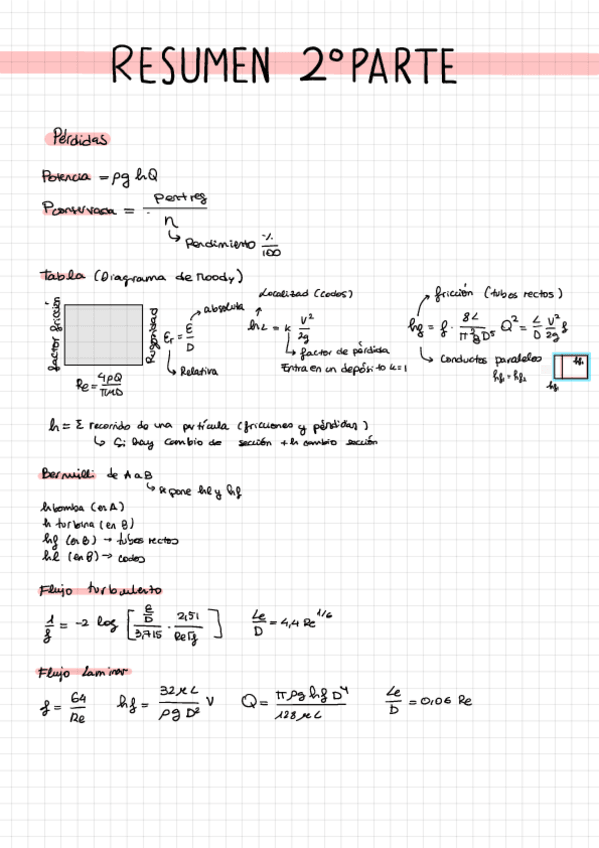 RESUMEN 2º PARTE
Pérdidas
Potencia = ρg hQ
Pconservada = Pentreg / n
↳ Rendimiento % / 100
Tabla (Diagrama de Moody)
factor fricción
Rugosidad
Re = 4ρQ / πμD
εr = ε / D
→ absoluta
↳ Relativa
Localizad (codos)
hL = k V² / 2g
↳ factor de pérdida
Entra en un depósito k=1
fricción (tubos rectos)
hf = f · 8L / π²gD⁵ Q² = L / D V² / 2g f
↳ Conductos paralelos
hf₁ = hf₂
h = Σ recorrido de una partícula (fricciones y pérdidas)
↳ Si hay cambio de sección + h cambio sección
Bernuilli de A a B
↳ se pone hl y hf
h bomba (en A)
h turbina (en B)
hf (en B) → tubos rectos
hl (en B) → codos
Flujo turbulento
1 / f = -2 log [ ε/D / 3,715 · 2,51 / Re√f ]
Le / D = 4,4 Re^1/6
Flujo Laminar
f = 64 / Re
hf = 32μL / ρg D² V
Q = πρg hf D⁴ / 128μL
Le / D = 0,06 Re